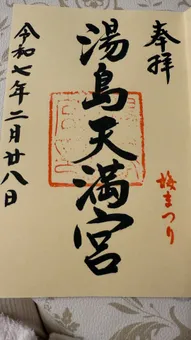 奉拝
梅まつり
湯島天満宮
令和七年二月廿八日